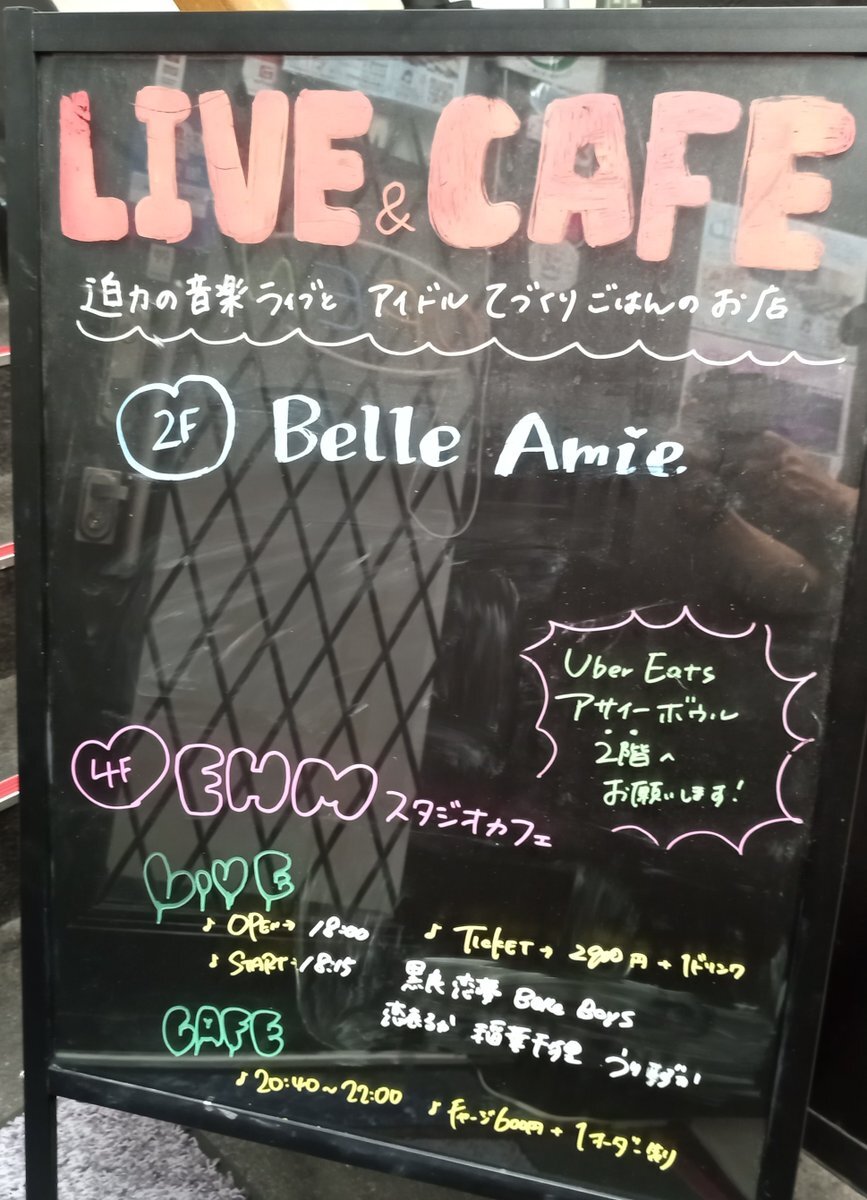 LIVE & CAFE
迫力の音楽ライブと アイドル てづくりごはんのお店
2F Belle Amie
Uber Eats
アサイーボウル
2階へ
お願いします!
4F EHM スタジオカフェ
LIVE
♪ OPEN→ 18:00
♪ START→18:15
♪ TICKET→ 2900円+1ドリンク
Boys
稲葉千里
CAFE
♪ 20:40~22:00
♪ チャージ600円+1オーダー制